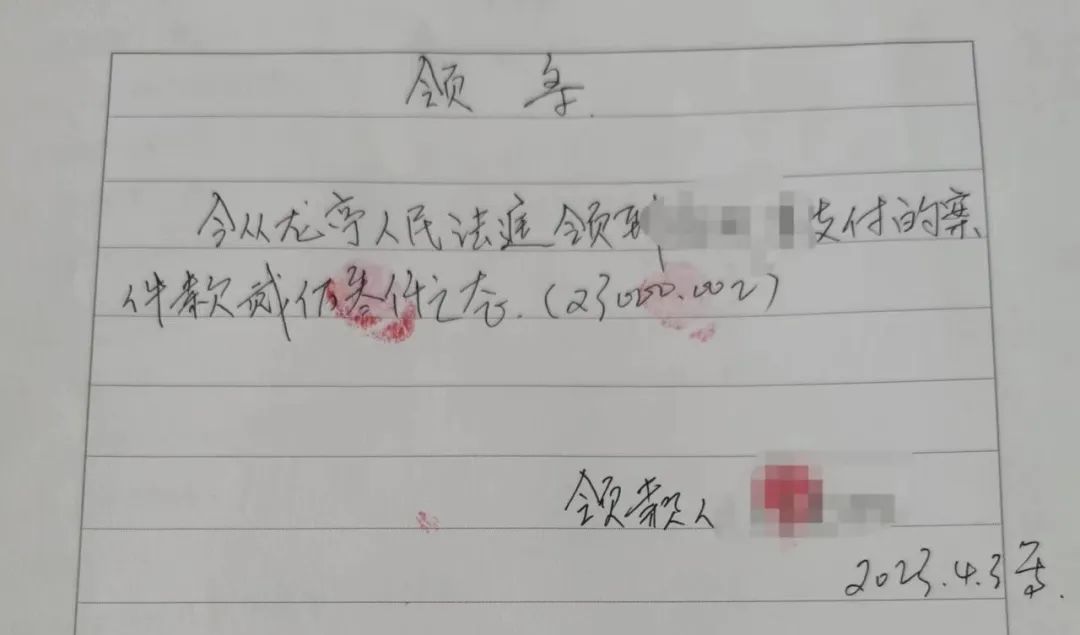 领条.
今从龙亭人民法庭领到 支付的案
件款贰万叁仟元整.(23000.00元)
领款人
2023.4.3号.